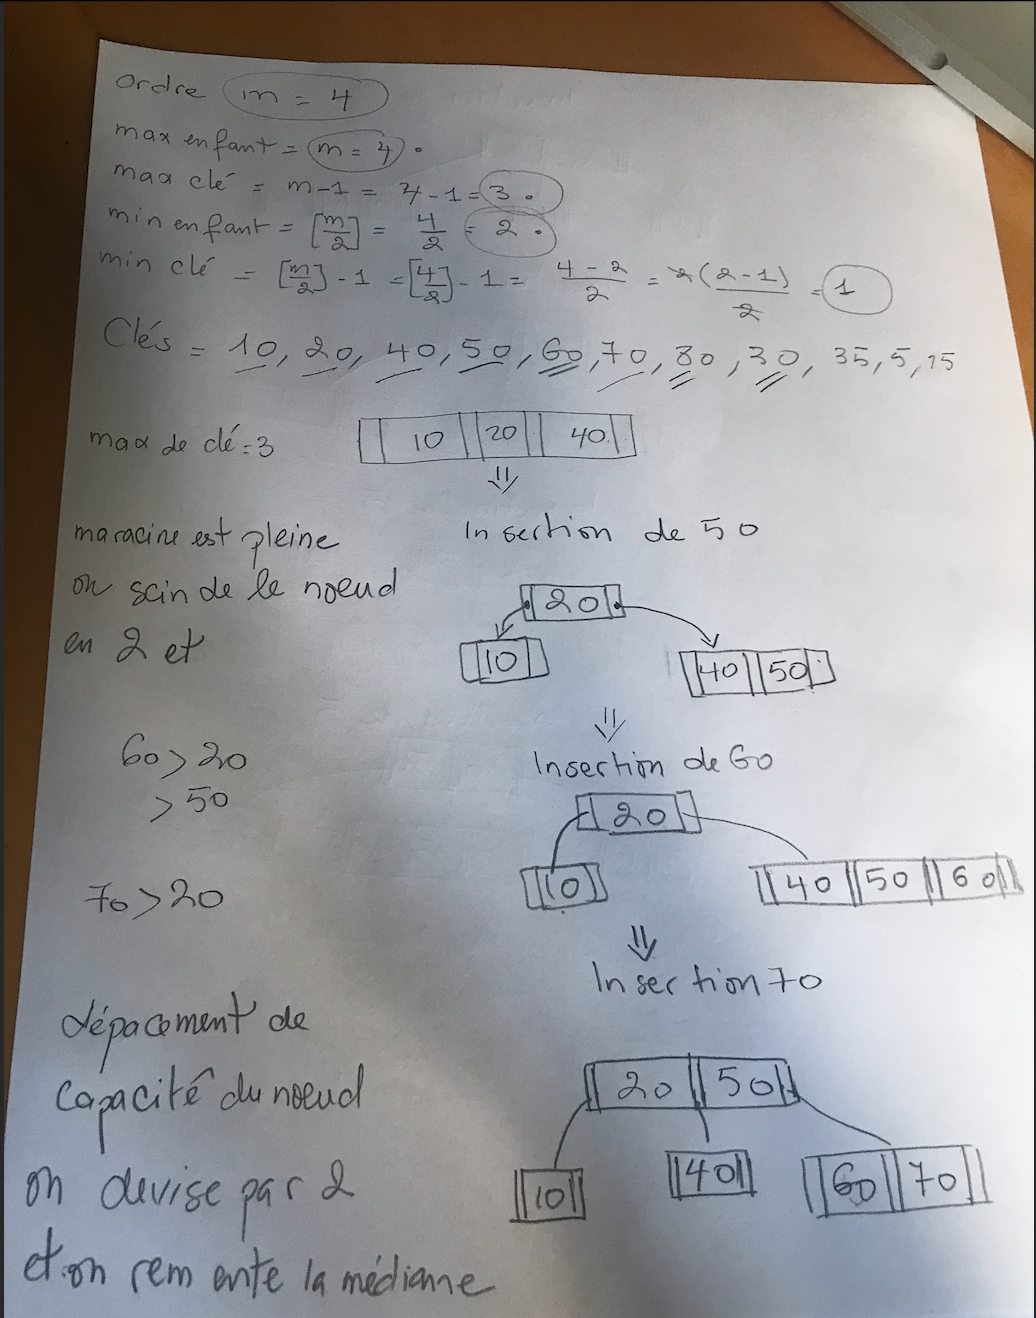 ordre m = 4
max enfant = m = 4.
max clé = m-1 = 4-1 = 3.
min enfant = [m/2] = 4/2 = 2.
min clé = [m/2] - 1 = [4/2] - 1 = 4-2/2 = 2(2-1)/2 = 1
Clés = 10, 20, 40, 50, 60, 70, 80, 30, 35, 5, 15
max de clé = 3
10 20 40
⇓
ma racine est pleine
on scinde le noeud
en 2 et
Insection de 50
20
10 40 50
⇓
60 > 20
> 50
Insection de 60
20
10 40 50 60
70 > 20
⇓
Insection 70
dépacement de
capacité du noeud
on devise par 2
et on remente la médianne
20 50
10 40 60 70